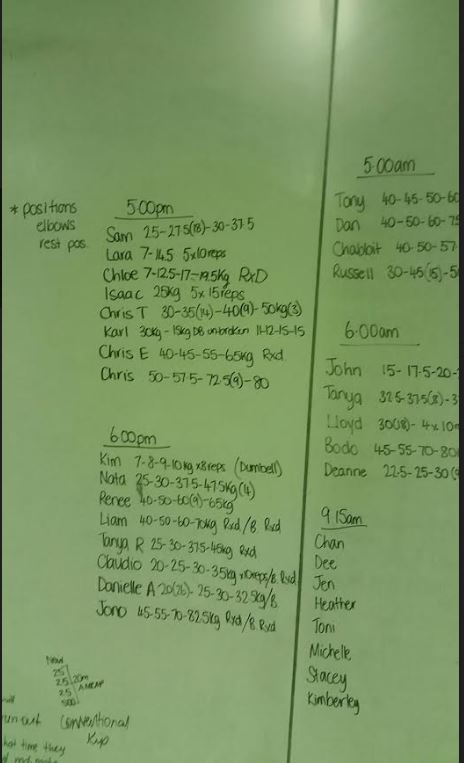 * positions
elbows
rest pos.
5:00pm
Sam 25-27.5(18)-30-37.5
Lara 7-14.5 5x10reps
Chloe 7-12.5-17-19.5kg RxD
Isaac 25kg 5x15reps
Chris T 30-35(14)-40(9)-50kg(3)
Karl 30kg-15kg DB unbroken 11-12-15-15
Chris E 40-45-55-65kg Rxd
Chris 50-57.5-72.5(9)-80
6:00pm
Kim 7-8-9-10kg x8reps (Dumbell)
Nata 25-30-37.5-47.5kg(4)
Renee 40-50-60(9)-65kg
Liam 40-50-60-70kg Rxd/B. Rxd
Tanya R 25-30-37.5-45kg Rxd
Claudio 20-25-30-35kg x10reps/B. Rxd
Danielle A 20(26)-25-30-32.5kg/B
Jono 45-55-70-82.5kg Rxd/B. Rxd
25
25 20m
25 AMRAP
500
run out Conventional
Kip
what time they
5:00am
Tony 40-45-50-60
Dan 40-50-60-75
Chabbit 40-50-57
Russell 30-45(15)-5
6:00am
John 15-17.5-20-
Tanya 32.5-37.5(8)-3
Lloyd 30(18)-4x10
Bodo 45-55-70-80
Deanne 22.5-25-30(9
9:15am
Chan
Dee
Jen
Heather
Toni
Michelle
Stacey
Kimberley